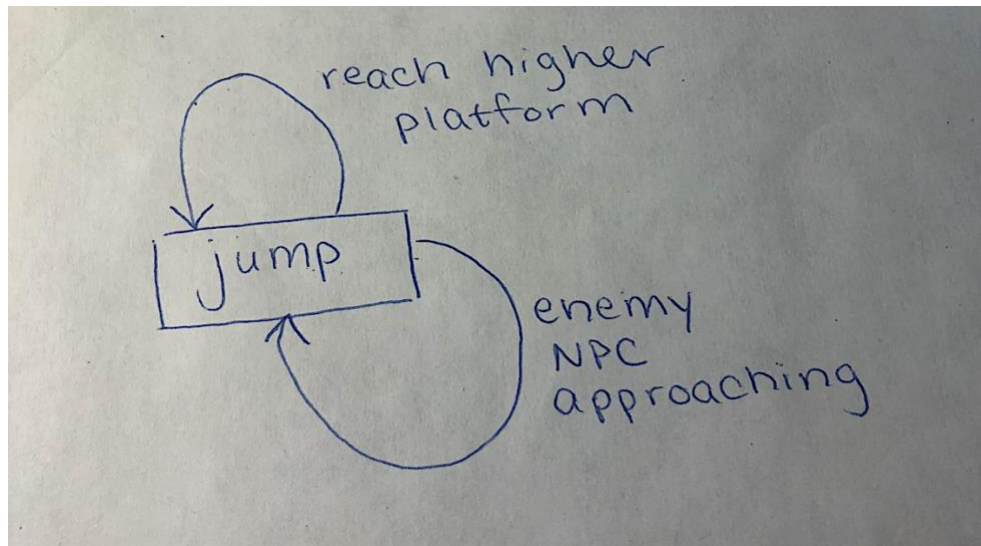 reach higher
platform
jump
enemy
NPC
approaching